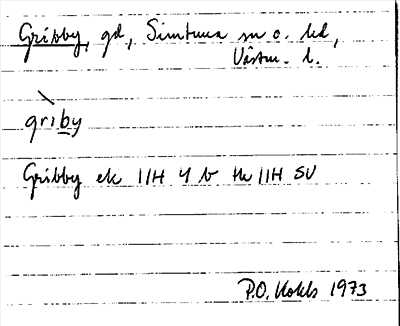 Gribby, gd, Simtuna sn o. hd,
Västm. l.
griby
Gribby ek 11H 4 b tk 11H SV
P.O. 1973